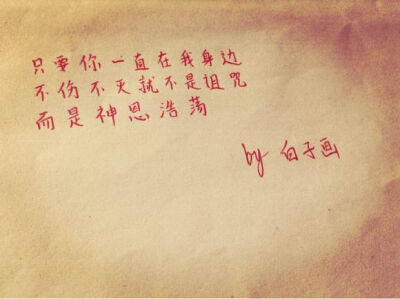 只要你一直在我身边
不伤不灭就不是诅咒
而是神恩浩荡
by 白子画